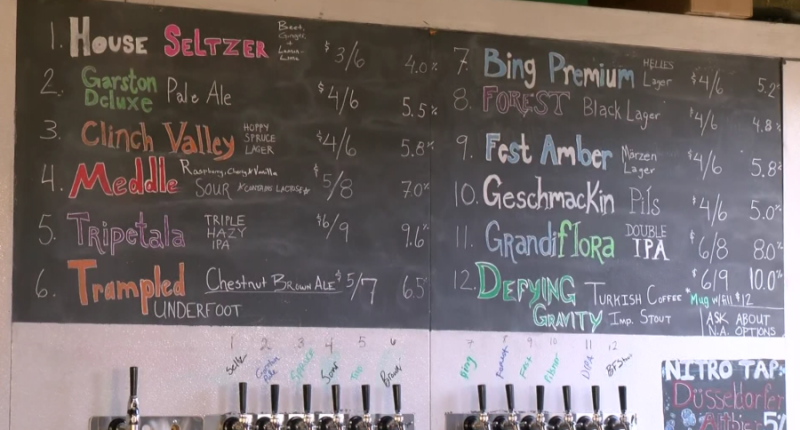 1. HOUSE SELTZER Beet, Ginger, + Lemon- $3/6 4.0%
2. Garston Deluxe Pale Ale $4/6 5.5%
3. Clinch Valley HOPPY SPRUCE LAGER $4/6 5.8%
4. Meddle Raspberry, Cherry, & Vanilla SOUR *CONTAINS LACTOSE* $5/8 7.0%
5. Tripetala TRIPLE HAZY IPA $6/9 9.6%
6. Trampled UNDERFOOT Chestnut Brown Ale $5/7 6.5%
7. Bing Premium HELLES Lager $4/6 5.2%
8. FOREST Black Lager $4/6 4.8%
9. Fest Amber Märzen Lager $4/6 5.8%
10. Geschmackin Pils $4/6 5.0%
11. Grandiflora DOUBLE IPA $6/8 8.0%
12. DEFYING GRAVITY TURKISH COFFEE IMP. STOUT $6/9 10.0%
*Mug w/fill $12
ASK ABOUT
N.A. OPTIONS
1 2 3 4 5 6
Seltz Garston Pale Spruce Sour Trip Brown
7 8 9 10 11 12
Bing Forest Fest Pilsner DIPA
NITRO TAP:
Düsseldorfer
Altbier 5%